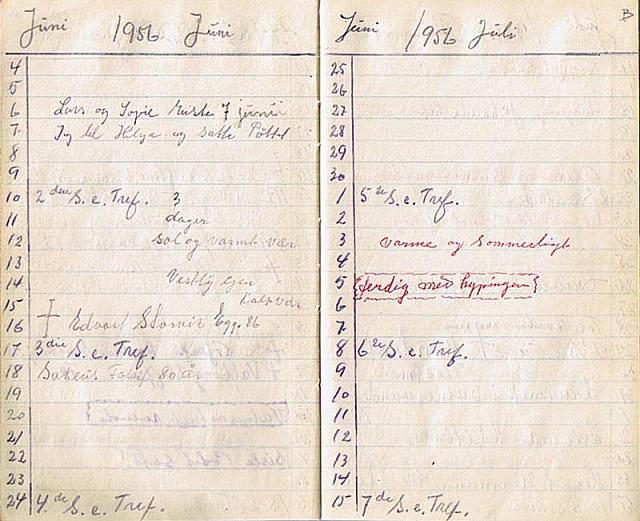 Juni 1956 Juni
4
5
6 Lars og Sofie reiste 7 juni
7 Jg til Helga og satte Pottet
8
9
10 2den S. e. Tref. 3
11 dager
12 sol og varmt vær
13
14 Vestlig
15
16 Edvart Egg. 86
17 3die S. e. Tref.
18 80 år
19
20
21
22
23
24 4.de S. e. Tref.
Juni 1956 Juli
B
25
26
27
28
29
30
1 5te S. e. Tref.
2
3 varme og sommerligt
4
5 ferdig med hypingen
6
7
8 6te S. e. Tref.
9
10
11
12
13
14
15 7de S. e. Tref.